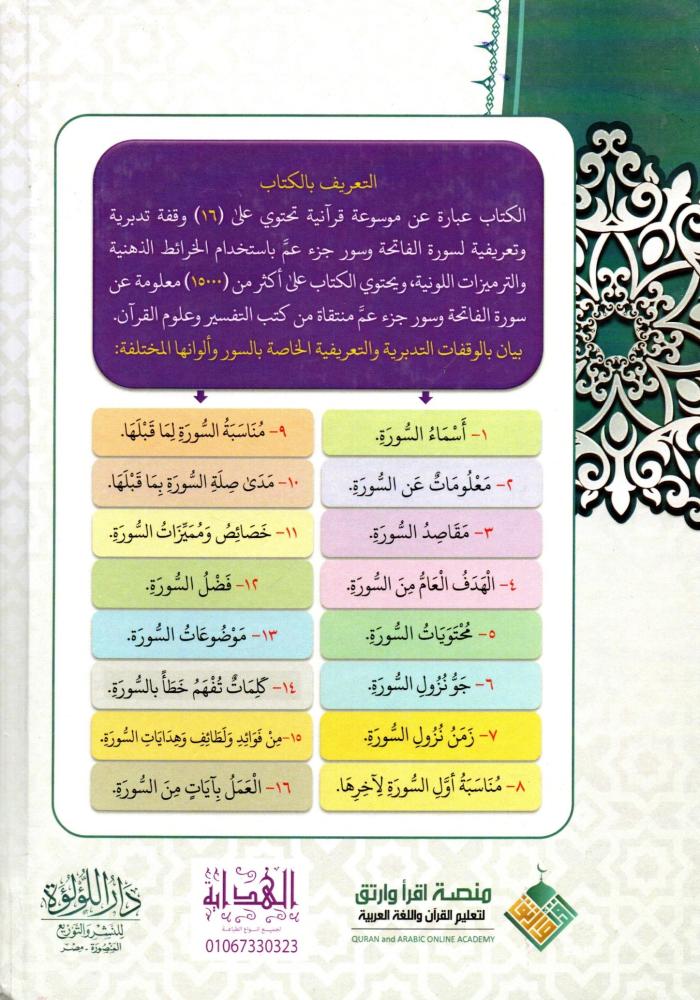 التعريف بالكتاب
الكتاب عبارة عن موسوعة قرآنية تحتوي على (١٦) وقفة تدبرية
وتعريفية لسورة الفاتحة وسور جزء عمَّ باستخدام الخرائط الذهنية
والترميزات اللونية، ويحتوي الكتاب على أكثر من (١٥٠٠٠) معلومة عن
سورة الفاتحة وسور جزء عمَّ منتقاة من كتب التفسير وعلوم القرآن.
بيان بالوقفات التدبرية والتعريفية الخاصة بالسور وألوانها المختلفة:
١- أَسْمَاءُ السُّورَةِ.
٢- مَعْلُومَاتٌ عَن السُّورَةِ.
٣- مَقَاصِدُ السُّورَةِ.
٤- الْهَدَفُ الْعَامُّ مِنَ السُّورَةِ.
٥- مُحْتَوَيَاتُ السُّورَةِ.
٦- جَوُّ نُزُولِ السُّورَةِ.
٧- زَمَنُ نُزُولِ السُّورَةِ.
٨- مُنَاسَبَةُ أوَّلِ السُّورَةِ لِآخِرِهَا.
٩- مُنَاسَبَةُ السُّورَةِ لِمَا قَبْلَهَا.
١٠- مَدَىٰ صِلَةِ السُّورَةِ بِمَا قَبْلَهَا.
١١- خَصَائِصُ وَمُمَيِّزَاتُ السُّورَةِ.
١٢- فَضْلُ السُّورَةِ.
١٣- مَوْضُوعَاتُ السُّورَة.
١٤- كَلِمَاتٌ تُفْهَمُ خَطَأً بالسُّورَةِ.
١٥-مِنْ فَوَائِدِ وَلَطَائِفِ وَهِدَايَاتِ السُّورَةِ.
١٦- الْعَمَلُ بِآيَاتٍ مِنَ السُّورَةِ.
منصة اقرأ وارتق
لتعليم القرآن واللغة العربية
QURAN and ARABIC ONLINE ACADEMY
الهداية
لجميع انواع الطباعة
01067330323
دار اللؤلؤة
للنشر والتوزيع
المنصورة - مصر